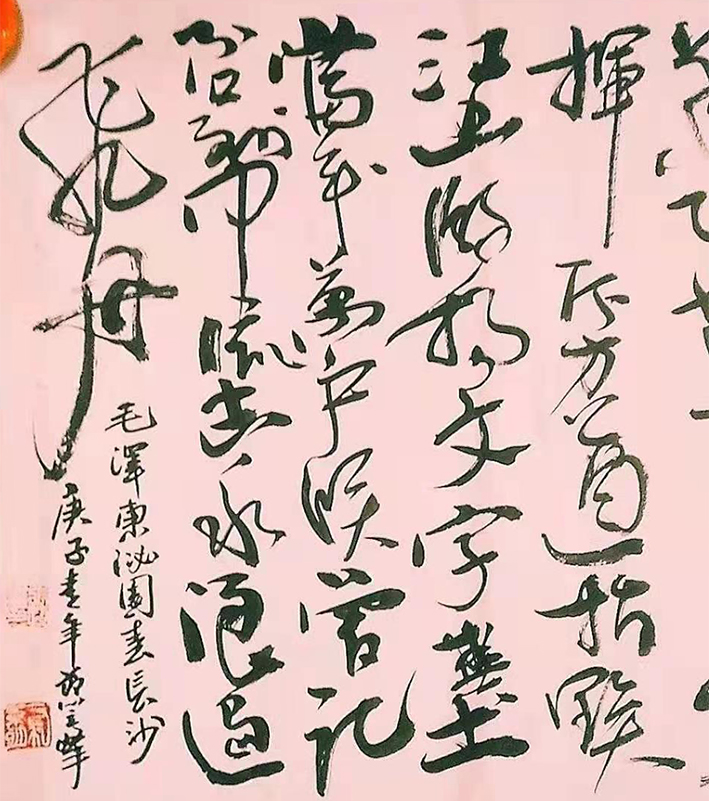 揮斥方遒指點
江山激揚文字糞土
當年萬户侯曾記
否到中流击水浪遏
飛舟
毛澤東沁園春長沙
庚子春年